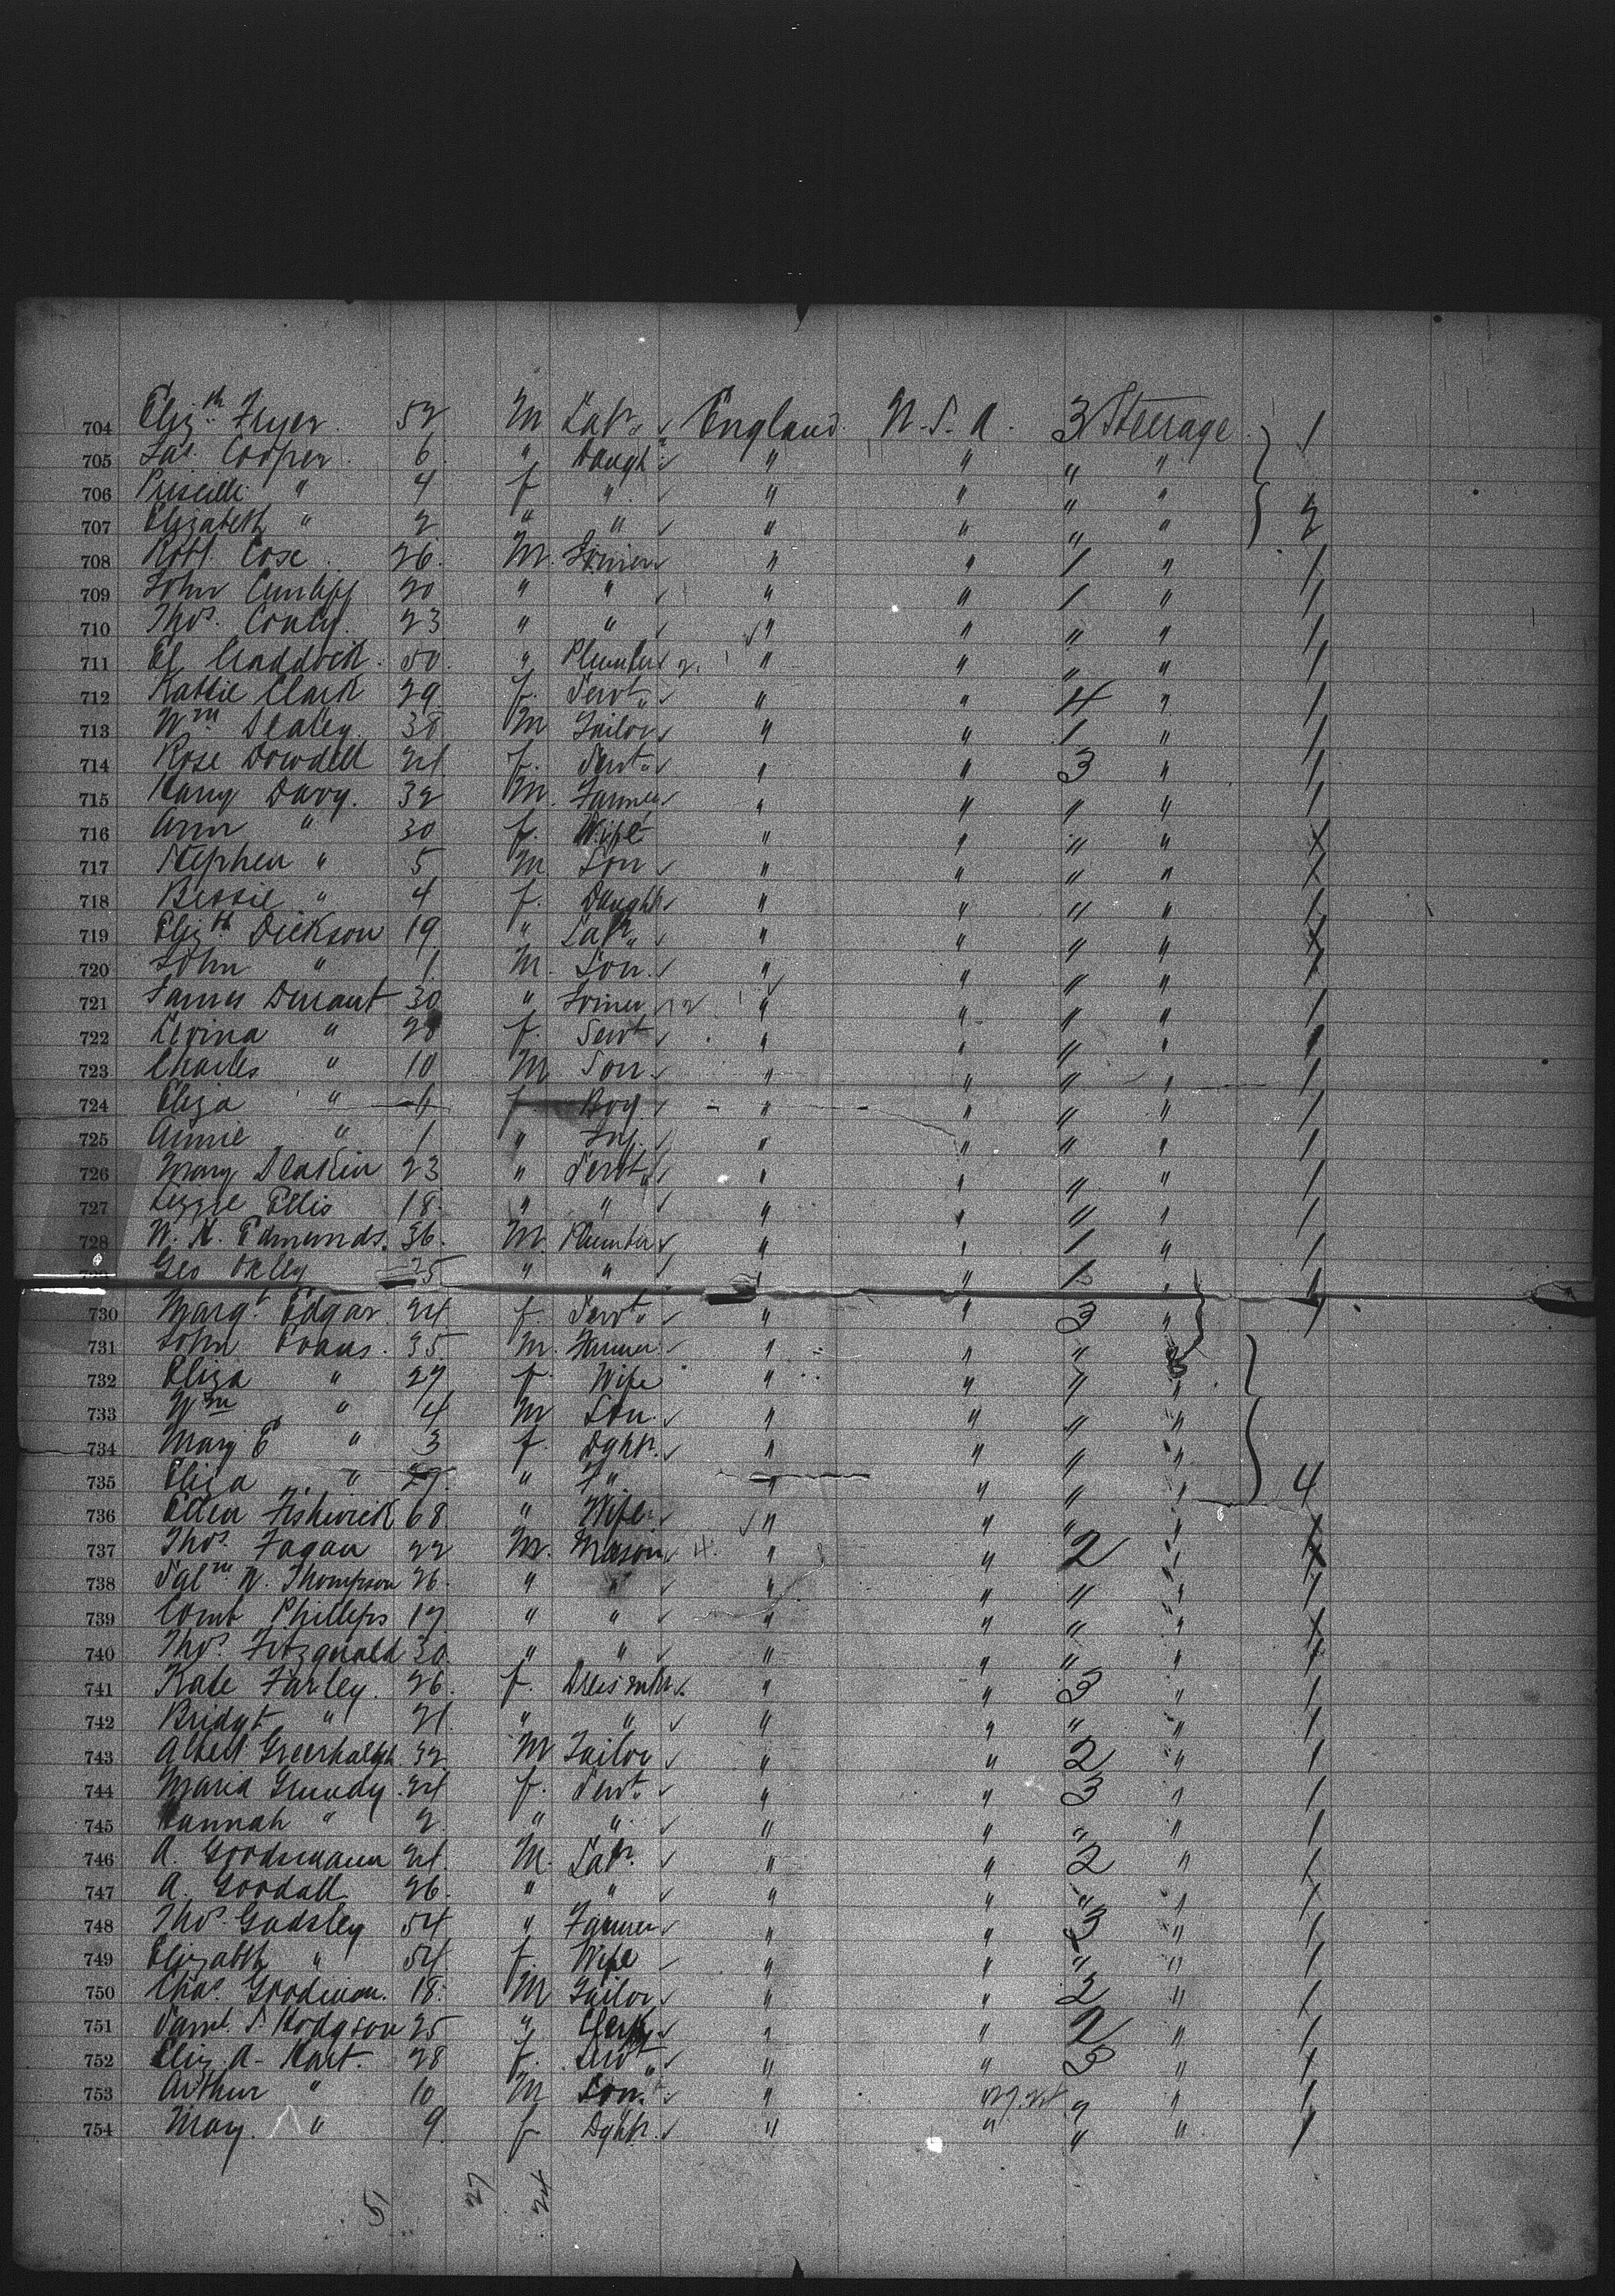 704 Eliz.th Fryer 52 M Labr. England U.S.A. 3 Steerage 1
705 Jas. Cooper 6 " Daugh " " " "
706 Priscilli " 4 f " " " " "
707 Elizabeth " 2 " " " " " " 2
708 Robt. Cose 26 M. Joiner " " 1 " 1
709 John Cunliff 20 " " " " 1 " 1
710 Thos. 23 " " " " " " 1
711 El Craddock 50 " Plumber 2 " " " " 1
712 Kattie Clark 29 f. Servt. " " 4 " 1
713 Wm 38 M Tailor " " 1 " 1
714 Rose Dowdell 24 f. Servt. " " 3 " 1
715 Harry Davy. 32 M. Farmer " " " "
716 Ann " 30 f. Wife " " " " X
717 Stephen " 5 M. Son " " " " X
718 Bessie " 4 f. Daughtr " " " " 1
719 Eliz.th Dickson 19 " Labr " " " " X
720 John " 1 M. Son. " " " "
721 James Durant 30 " Joiner 2 " " " " 1
722 " 28 f. Servt " " " " 1
723 Charles " 10 M Son " " " " 1
724 Eliza " f. Boy " " " " 1
725 Annie " 1 " Inf. " " " " 1
726 Mary Deakin 23 " Servt. " " " " 1
727 Lizzie Ellis 18 " " " " " " 1
728 W. H. Edmunds. 36 M Plumber " " 1 " 1
Geo 25 " " " " 1 " 1
730 Margt. Edgar 24 f. Servt. " " 3 " 1
731 John Evans. 35 M. Farmer " " " "
732 Eliza " 27 f. Wife " " " "
733 Wm " 4 M Son. " " " "
734 Mary E " 3 f. Dghtr. " " " "
735 Eliza " 27 " " " " " " 4
736 Ellen Fishwick 68 " Wife " " " " X
737 Thos. Fagan 22 M. Mason 4 " " 2 " X
738 W. Thompson 26 " " " " " " 1
739 Phillips 17 " " " " " " X
740 Thos. Fitzgerald 30 " " " " " "
741 Kate Farley. 26 f. Dressmkr " " 3 " 1
742 Bridgt " 21 " " " " " " 1
743 Albert Greenhalgh 32 M Tailor " " 2 " 1
744 Maria Grundy 24 f. Servt. " " 3 " 1
745 Hannah " 2 " " " " " " 1
746 A. Goodsmann 24 M. Labr. " " 2 " 1
747 A. Goodall 26 " " " " " " 1
748 Thos. Gadsley 54 " Farmer " " 3 " 1
749 Elizabth " 54 f. Wife " " " " 1
750 Chas. Goodman. 18 M Tailor " " 2 " 1
751 Saml. S Hodgson 25 " Clerk " " 2 " 1
752 Eliz. A. Hart. 28 f. Servt " " 3 " 1
753 Arthur " 10 M Son. " " " " 1
754 May " 9 f Dghtr. " " " " 1
51 27 24